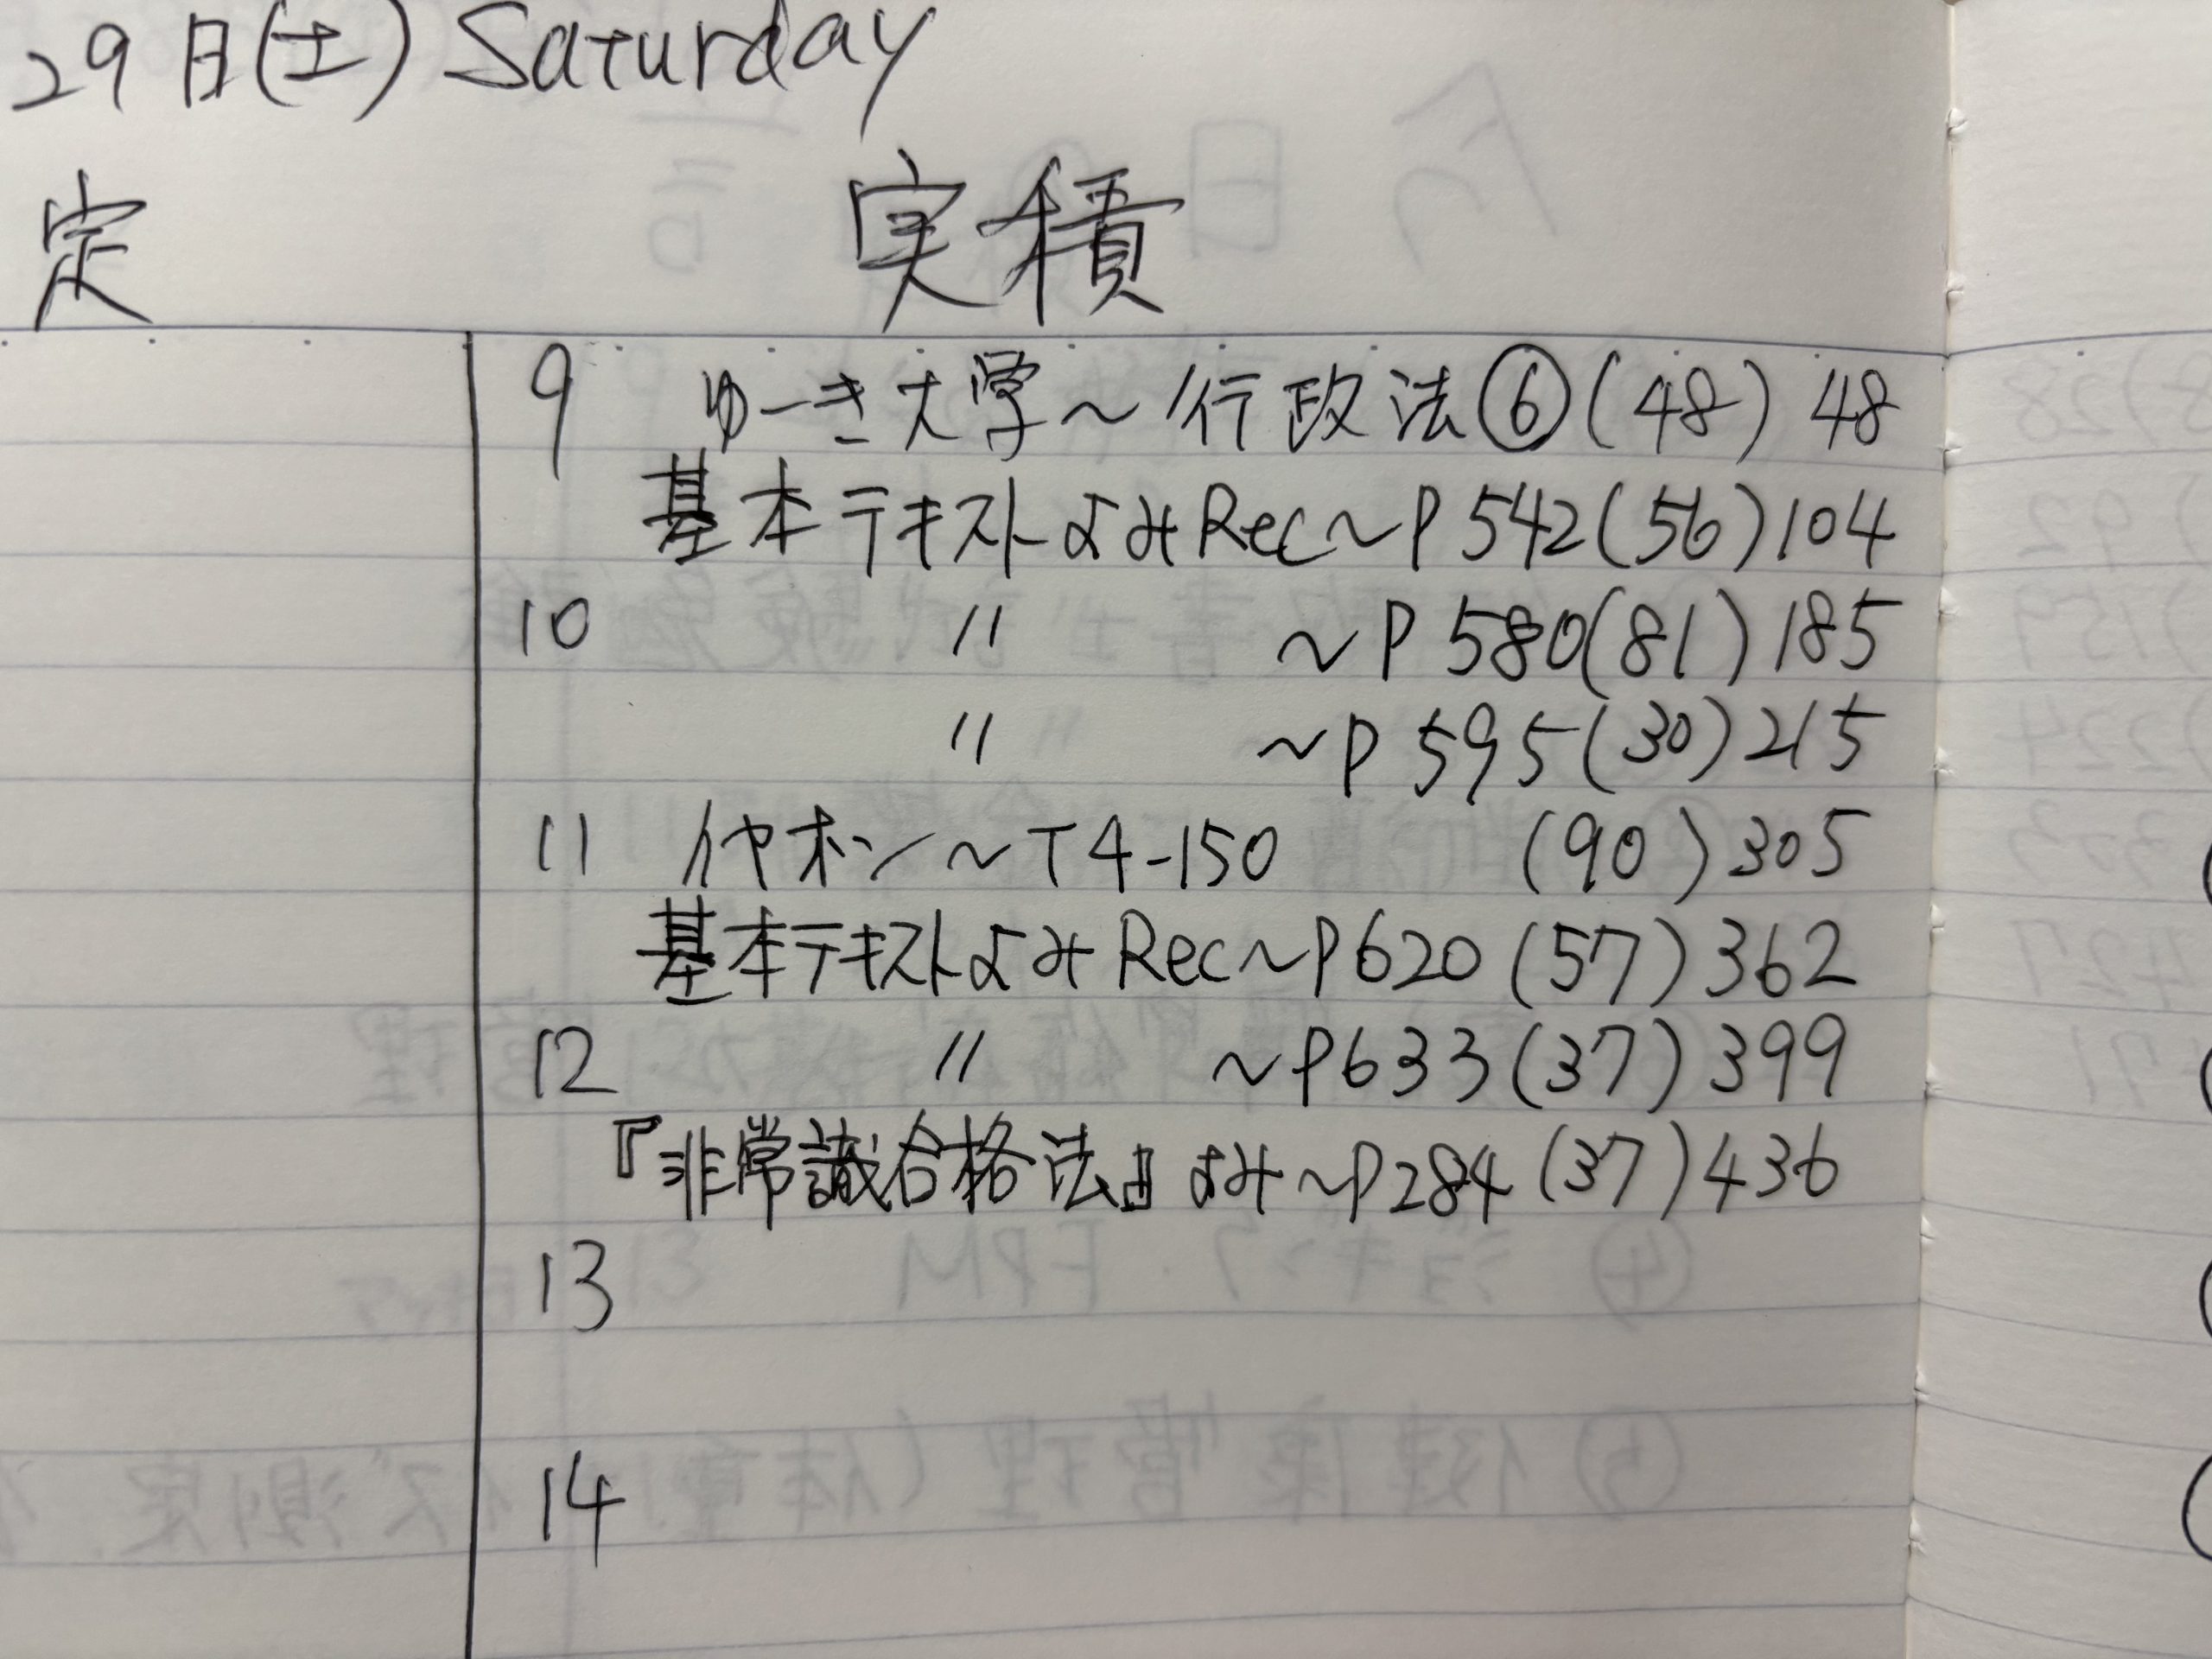 29日(土) Saturday
定 実積
9 ゆーき大学～行政法⑥(48) 48
基本テキストよみRec～P542(56)104
10 〃 ～P580(81)185
〃 ～P595(30)215
11 イヤホン～T4-150 (90)305
基本テキストよみRec～P620(57)362
12 〃 ～P633(37)399
『非常識合格法』よみ～P284(37)436
13
14